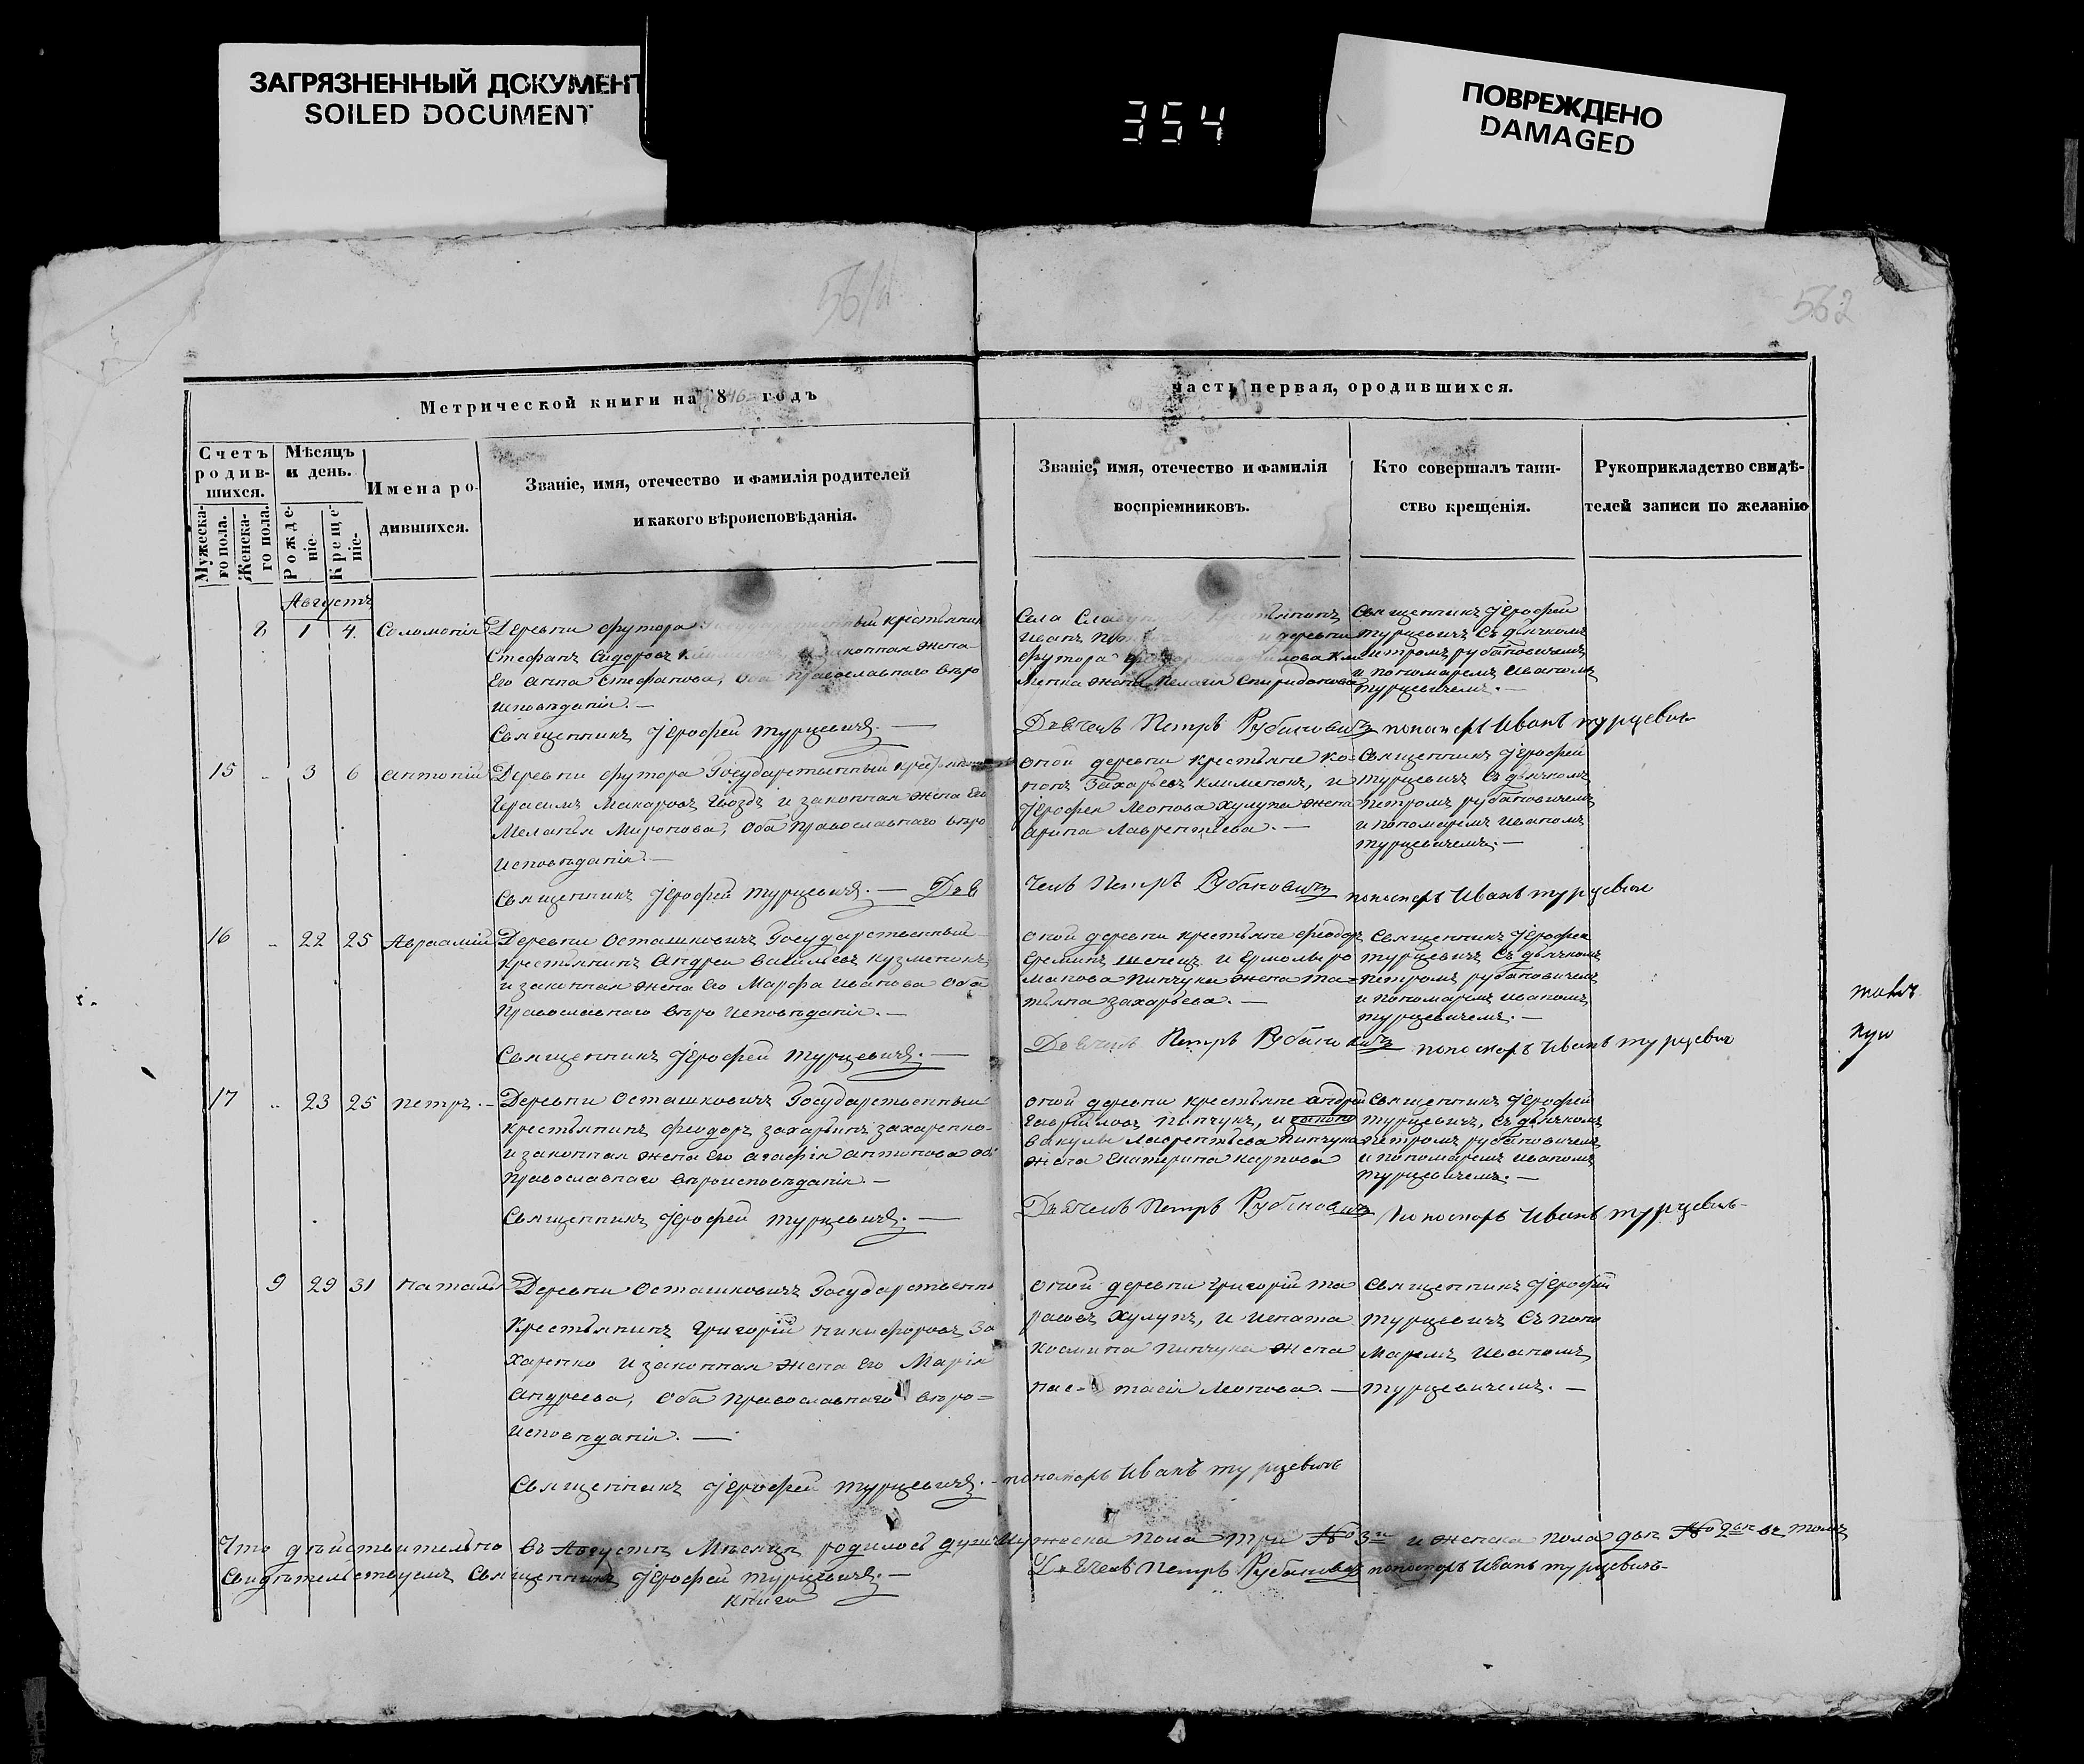 ЗАГРЯЗНЕННЫЙ ДОКУМЕНТ
SOILED DOCUMENT
354
ПОВРЕЖДЕНО
DAMAGED
562
Метрической книги на 1846 годъ
часть первая, ородившихся.
Счетъ родив-шихся.
Мужеска-го пола.
Женска-го пола.
Мѣсяцъ и день.
Рожде-ніе.
Креще-ніе.
Имена ро-дившихся.
Званіе, имя, отечество и фамилія родителей
и какого вѣроисповѣданія.
Званіе, имя, отечество и фамилія
воспріемниковъ.
Кто совершалъ таин-
ство крещенія.
Рукоприкладство свидѣ-
телей записи по желанію
Августъ
8 1 4. Соломонія
Деревни Футора крестьянин
Стефанъ Сидоровъ законная жена
Его Анна Стефанова, Оба Православнаго вѣро
исповѣданія. —
Священникъ Іерофей Турцевичъ. —
Села крестьянинъ
Иванъ и деревни
Футора Кли
менка жена Пелагія Спиридонова
Священникъ Іерофей
Турцевичъ съ дьячкомъ
Петромъ Рубановичемъ
и пономаремъ Иваномъ
Турцевичемъ. —
Дьячекъ Петръ Рубановичъ пономарь Иванъ Турцевичъ
15 .. 3 6 Антоній
Деревни Футора Государственный крестьянинъ
Герасимъ Макаровъ Гвоздь и законная жена Его
Меланья Миронова, Оба Православнаго вѣро
исповѣданія. —
Священникъ Іерофей Турцевичъ. — Дья
оной деревни крестьяне Ко-
нонъ Захарьевъ Клименокъ, и
Іерофея Леонова Хулупа жена
Арина Лаврентіева. —
Священникъ Іерофей
Турцевичъ съ дьячкомъ
Петромъ Рубановичемъ
и пономаремъ Иваномъ
Турцевичемъ. —
чекъ Петръ Рубановичъ пономарь Иванъ Турцевичъ
16 .. 22 25 Авраамій
Деревни Осташковичъ Государственный
крестьянинъ Андрей Васильевъ Кузменокъ
и законная жена Его Марфа Иванова Оба
Православнаго вѣро исповѣданія. —
Священникъ Іерофей Турцевичъ. —
оной деревни крестьяне Феодоръ
Ереминъ и Ермолы Ро
манова Пинчука жена Та=
тьяна Захарьева. —
Священникъ Іерофей
Турцевичъ съ дьячкомъ
Петромъ Рубановичемъ
и пономаремъ Иваномъ
Турцевичемъ. —
Дьячекъ Петръ Рубановичъ пономарь Иванъ Турцевичъ
17 .. 23 25 Петръ. —
Деревни Осташковичъ Государственный
крестьянинъ Феодоръ Захарьинъ Захаренко-
и законная жена Его Агафія Антонова Оба
Православнаго вѣроисповѣданія. —
Священникъ Іерофей Турцевичъ. —
оной деревни крестьяне Андрей
Гавриловъ Пинчукъ, и
Вакулы Лаврентьева Пинчука
жена Екатерина Карпова
Священникъ Іерофей
Турцевичъ, съ дьячкомъ
Петромъ Рубановичемъ
и пономаремъ Иваномъ
Турцевичемъ. —
Дьячекъ Петръ Рубановичъ Пономарь Иванъ Турцевичъ-
9 29 31 Наталья
Деревни Осташковичъ Государственны
Крестьянинъ Григорій Никифоровъ За
харенко и законная жена Его Марія
Андреева, Оба Православнаго вѣро=
исповѣданія. —
Священникъ Іерофей Турцевичъ. - пономарь Иванъ Турцевичъ
оной деревни Григорій Та
расовъ Хулупъ, и Игната
Космина Пинчука жена
Нас-тасія Леонова. —
Священникъ Іерофей
Турцевичъ съ поно
маремъ Иваномъ
Турцевичемъ. —
Что дѣйствительно въ Августѣ Мѣсяцѣ родилось душъ Мужеска пола три № 3и и женска пола двѣ № 2ва въ томъ
Свидѣтельствуемъ Священникъ Іерофей Турцевичъ. — Дьячекъ Петръ Рубановичъ пономарь Иванъ Турцевичъ-
Книги